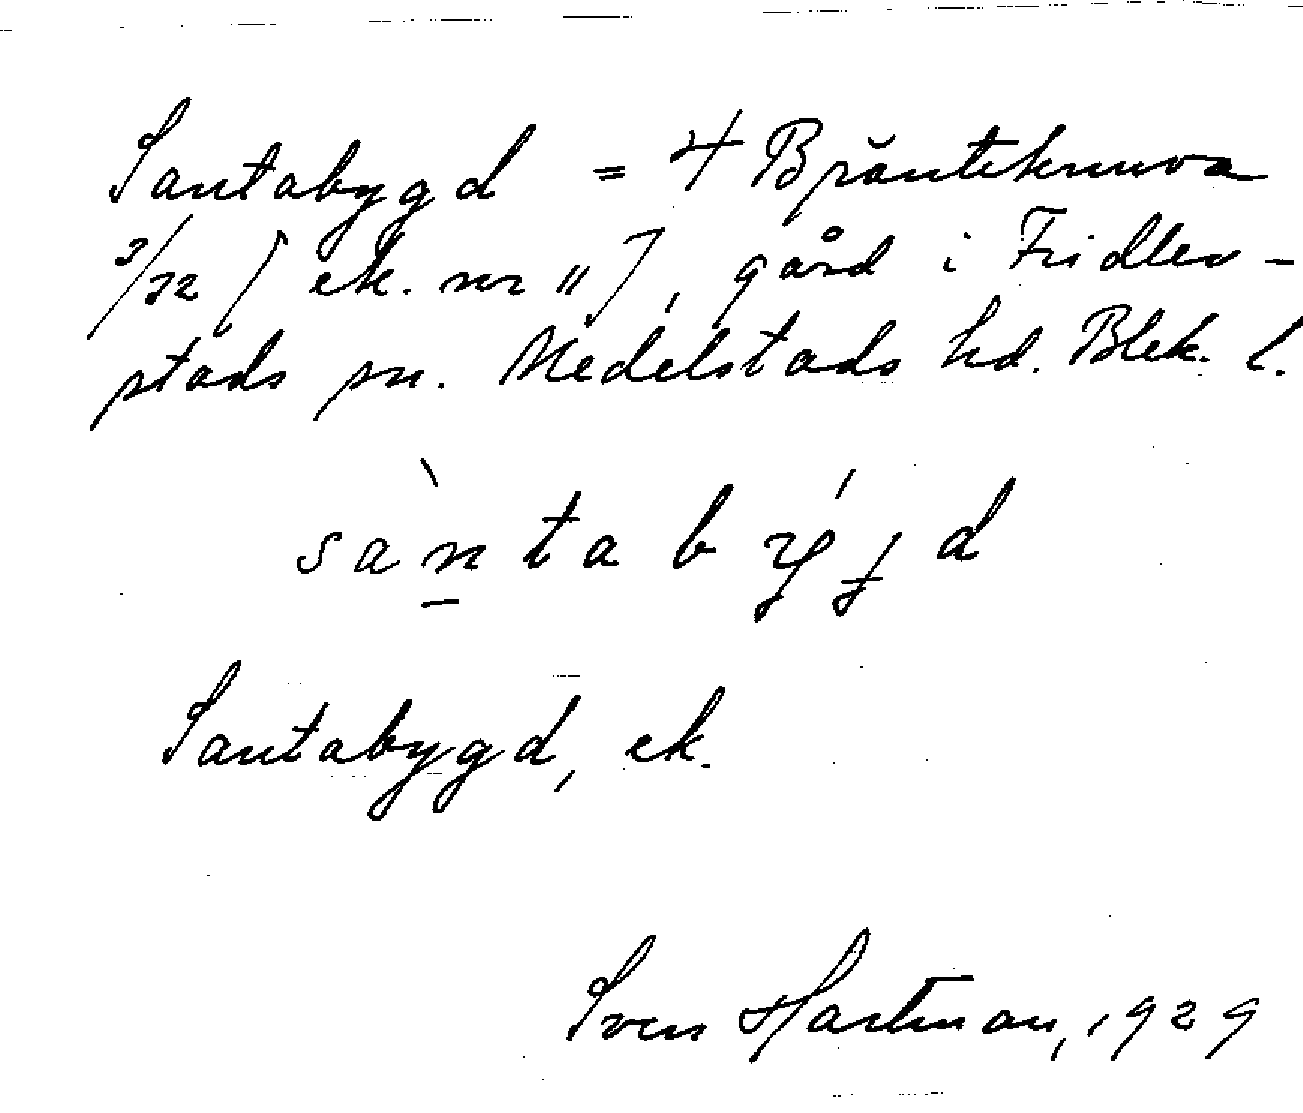 Santabygd = 4 Bränteknuva
3/32 [ek. nr "], gård i Fridlev-
stads sn. Medelstads hd. Blek. l.
sàn̠tabýɟd
Santabygd, ek.
Sven Hartman, 1929